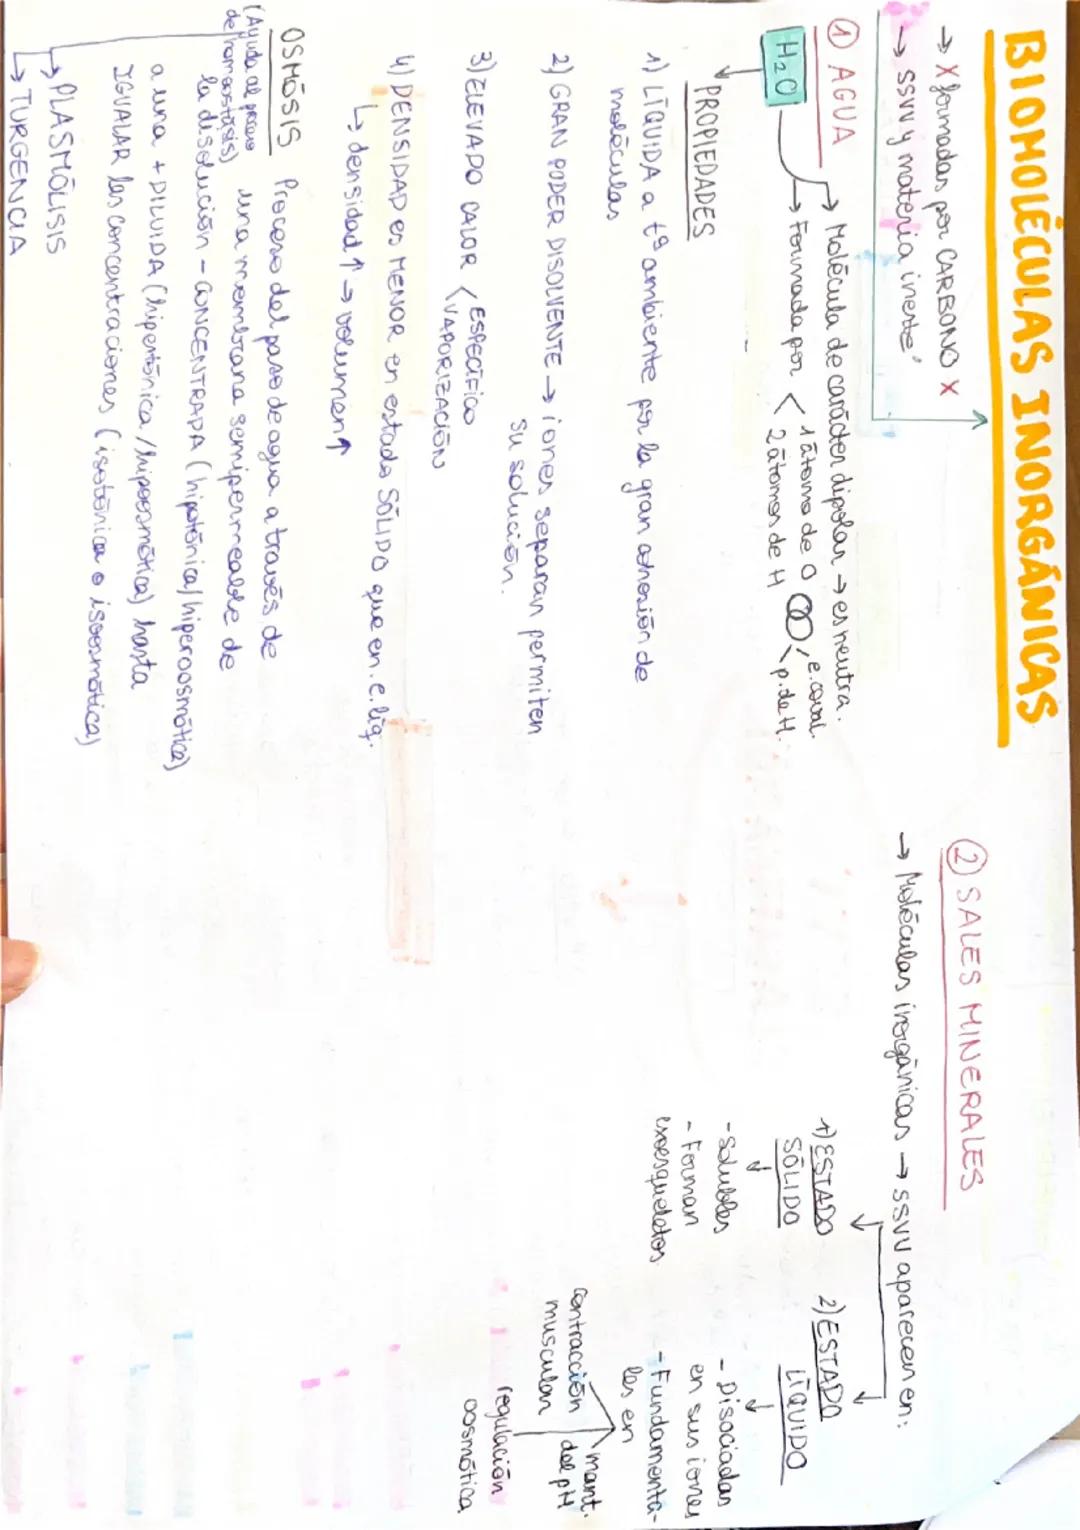 BIOMOLÉCULAS INORGÁNICAS
→ X formadas por CARBONO X
→ SSVV y materia inerte
① AGUA
→ Molécula de carácter dipolar → es neutra.
H₂O
→ Formada por < 1 átomo de O
2 átomos de H
e. coval.
p. de H.
PROPIEDADES
1) LÍQUIDA a tº ambiente por la gran cohesión de
moléculas
2) GRAN PODER DISOLVENTE → iones separan permiten
su solución.
3) ELEVADO CALOR < ESPECÍFICO
VAPORIZACIÓN
4) DENSIDAD es MENOR en estado SÓLIDO que en e. líq.
↳ densidad ↑ → volumen ↑
OSMÓSIS
(Ayuda al proceso
de homeostasis)
Proceso del paso de agua a través de
una membrana semipermeable de
la disolución - CONCENTRADA (hipotónica/hiperosmótica)
a una + DILUIDA (hipertónica/hipoosmótica) hasta
IGUALAR las concentraciones (isotónica o isoosmótica)
→ PLASMÓLISIS
↳ TURGENCIA
② SALES MINERALES
→ Moléculas inorgánicas → SSVV aparecen en:
1) ESTADO
SÓLIDO
- Solubles
- Forman
exoesqueletos
2) ESTADO
LÍQUIDO
- Disociadas
en sus iones
- Fundamenta-
les en
contracción
muscular
mant.
del pH
regulación
oosmótica